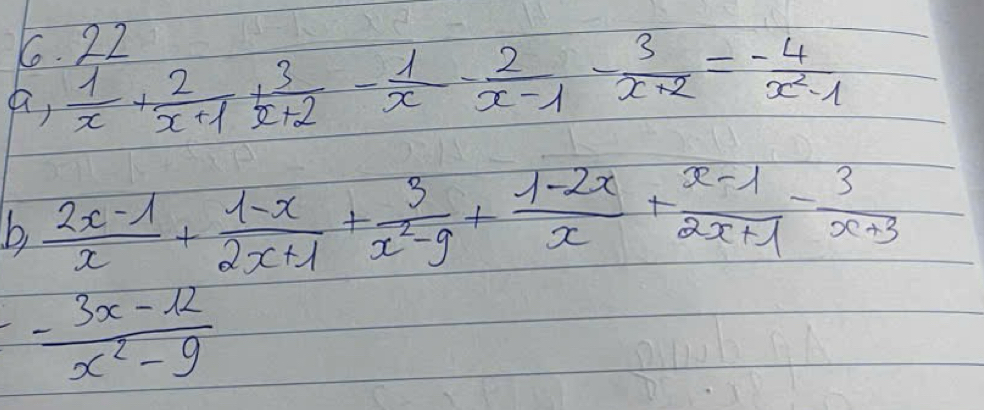 6.22
a, 1/x + 2/x+1 + 3/x+2 - 1/x - 2/x-1 - 3/x+2 = - 4/x²-1
b, 2x-1/x + 1-x/2x+1 + 3/x²-9 + 1-2x/x + x-1/2x+1 - 3/x+3
= - 3x-12/x²-9